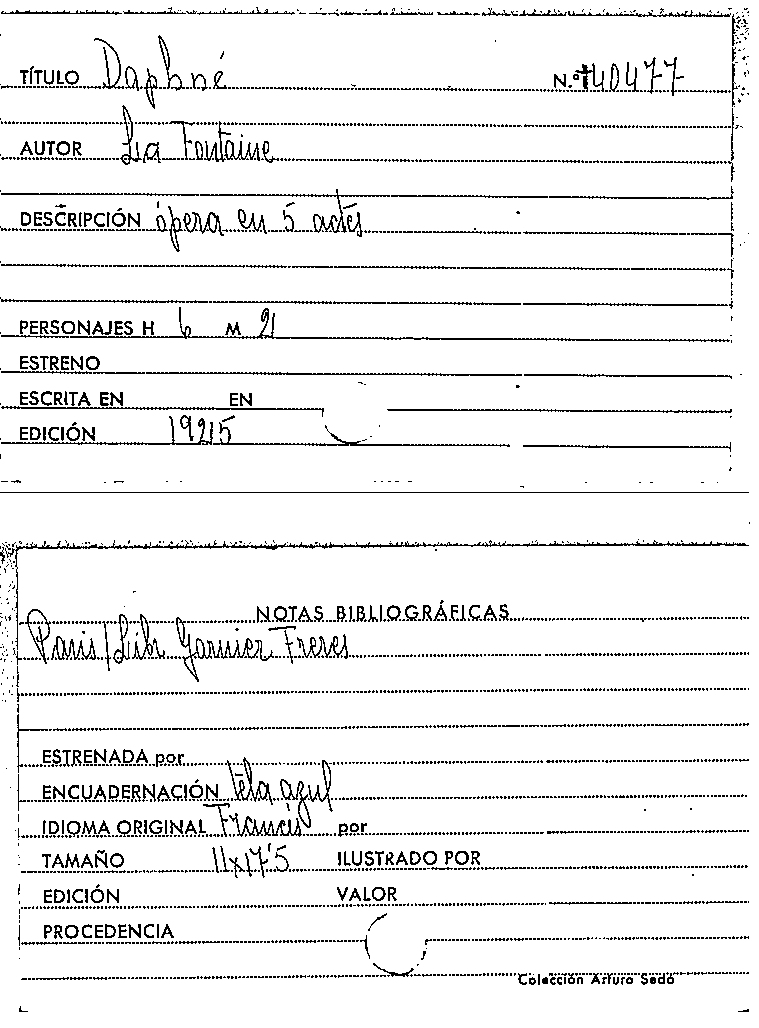 TÍTULO Daphné N.º 40477
AUTOR La Fontaine
DESCRIPCIÓN ópera en 5 actes
PERSONAJES H 6 M 21
ESTRENO
ESCRITA EN EN
EDICIÓN 1925
NOTAS BIBLIOGRÁFICAS
Paris/Libr Garnier Freres
ESTRENADA por
ENCUADERNACIÓN tela azul
IDIOMA ORIGINAL Francés por
TAMAÑO 11x17'5 ILUSTRADO POR
EDICIÓN VALOR
PROCEDENCIA
Colección Arturo Sedó